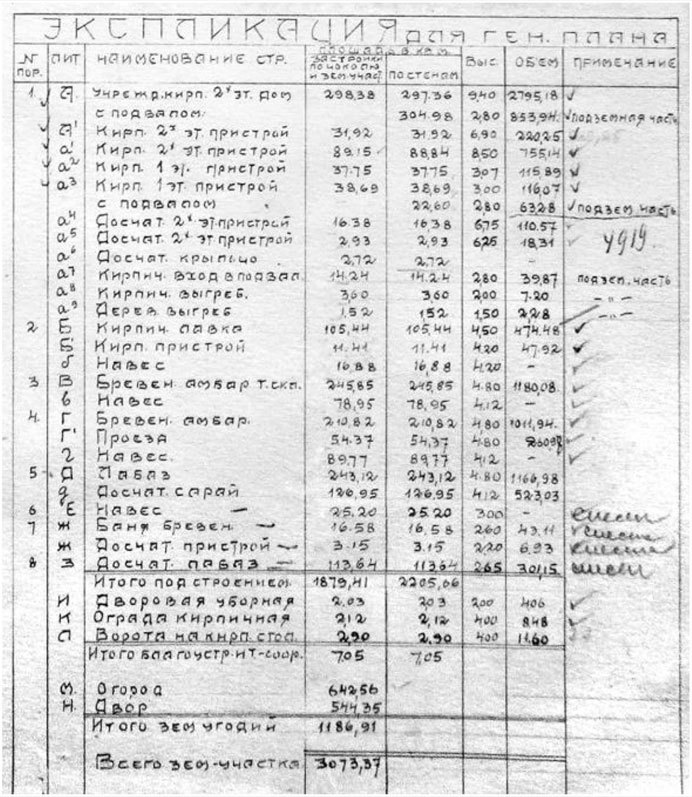 ЭКСПЛИКАЦИЯ ДЛЯ ГЕН. ПЛАНА
№ ПОР. ЛИТ НАИМЕНОВАНИЕ СТР. ПЛОЩАДЬ В КВ.М. ВЫС. ОБЪЕМ ПРИМЕЧАНИЕ
ЗАСТРОЙКИ ПО ЦОКОЛЮ И ЗЕМ. УЧАСТ. ПО СТЕНАМ
1. А. Учрежд. кирп. 2х эт. дом 298,38 297.36 9,40 2795,18
с подвалом. 304.98 2,80 853,94. подземная часть
А' Кирп. 2х эт. пристрой 31,92 31.92 6,90 220,25
а' Кирп. 2х эт. пристрой 89.15 88,84 8,50 755,14
а² Кирп. 1 эт. пристрой 37.75 37.75 3,07 115,89
а³ Кирп. 1 эт. пристрой 38,69 38,69 3,00 116,07
с подвалом 22,60 2,80 63,28 подзем. часть
а⁴ Досчат. 2х эт. пристрой 16.38 16,38 6,75 110.57
а⁵ Досчат. 2х эт. пристрой 2,93 2,93 6,25 18,31 4919.
а⁶ Досчат. крыльцо 2,72 2,72 -
а⁷ Кирпич. вход в подвал. 14.24 14.24 2,80 39,87 подзем. часть
а⁸ Кирпич. выгреб. 3,60 3,60 2,00 7.20 -"-
а⁹ Дерев. выгреб 1,52 1,52 1,50 2,28 -"-
2 Б Кирпич. лавка 105,44 105,44 4,50 474.48
Б' Кирп. пристрой 11.41 11.41 4.20 47.92
б Навес 16,88 16,88 4.20 -
3 В Бревен. амбар т. скл. 245,85 245,85 4.80 1180,08
в Навес 78,95 78,95 4,12 -
4. Г Бревен. амбар. 210,82 210,82 4,80 1011,94.
Г' Проезд 54.37 54,37 4.80
г Навес. 89.77 89,77 4,12 -
5 Д Лабаз 243,12 243,12 4.80 1166,98
д Досчат. сарай 126,95 126,95 4,12 523,03
6 Е Навес — 25,20 25.20 3,00 - снесен
7 Ж Баня бревен. — 16.58 16,58 2,60 43.11 снесена
ж Досчат. пристрой — 3.15 3.15 2,20 6.93
8 З Досчат. лабаз — 113,64 113,64 2,65 301,15 снесен
Итого под строением. 1879,41 2205,66
И Дворовая уборная 2,03 2,03 2,00 4,06
К Ограда кирпичная 2,12 2,12 4,00 8,48
Л Ворота на кирп. стол. 2,90 2,90 4,00 11.60
Итого благоустр. ит-соор. 7,05 7,05
М. Огород 642,56
Н. Двор 544,35
Итого зем. угодий 1186,91
Всего зем-участка 3073,37